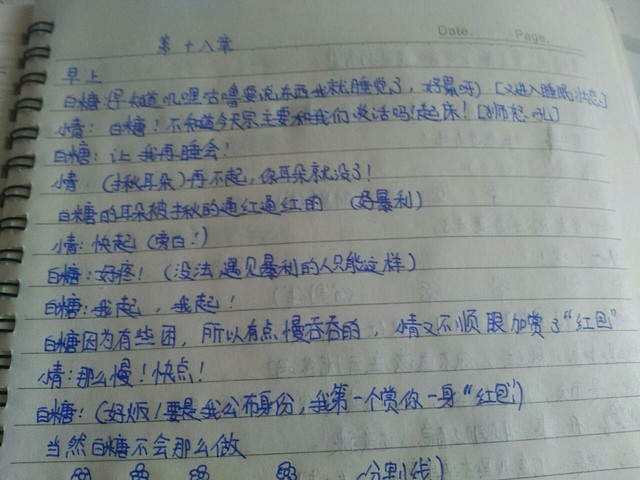 Date. Page.
第十八章
早上
白糖:(早知道叽哩咕噜要说东西我就睡觉了,好累呀)[又进入睡眠状态]
小情:白糖!不知道今天宗主要和我们谈话吗!起床![狮怒吼]
白糖:让我再睡会!
小情 (揪耳朵)再不起,你耳朵就没了!
白糖的耳朵被揪的通红通红的 (好暴利)
小情:快起(旁白:)
白糖:好疼!(没法,遇见暴利的人只能这样)
白糖:我起,我起!
白糖因为有些困,所以有点慢吞吞的,小情又不顺眼加赏了“红包”
小情:那么慢!快点!
白糖:(好烦!要是我公布身份,我第一个赏你一身“红包”)
当然白糖不会那么做
(分割线)